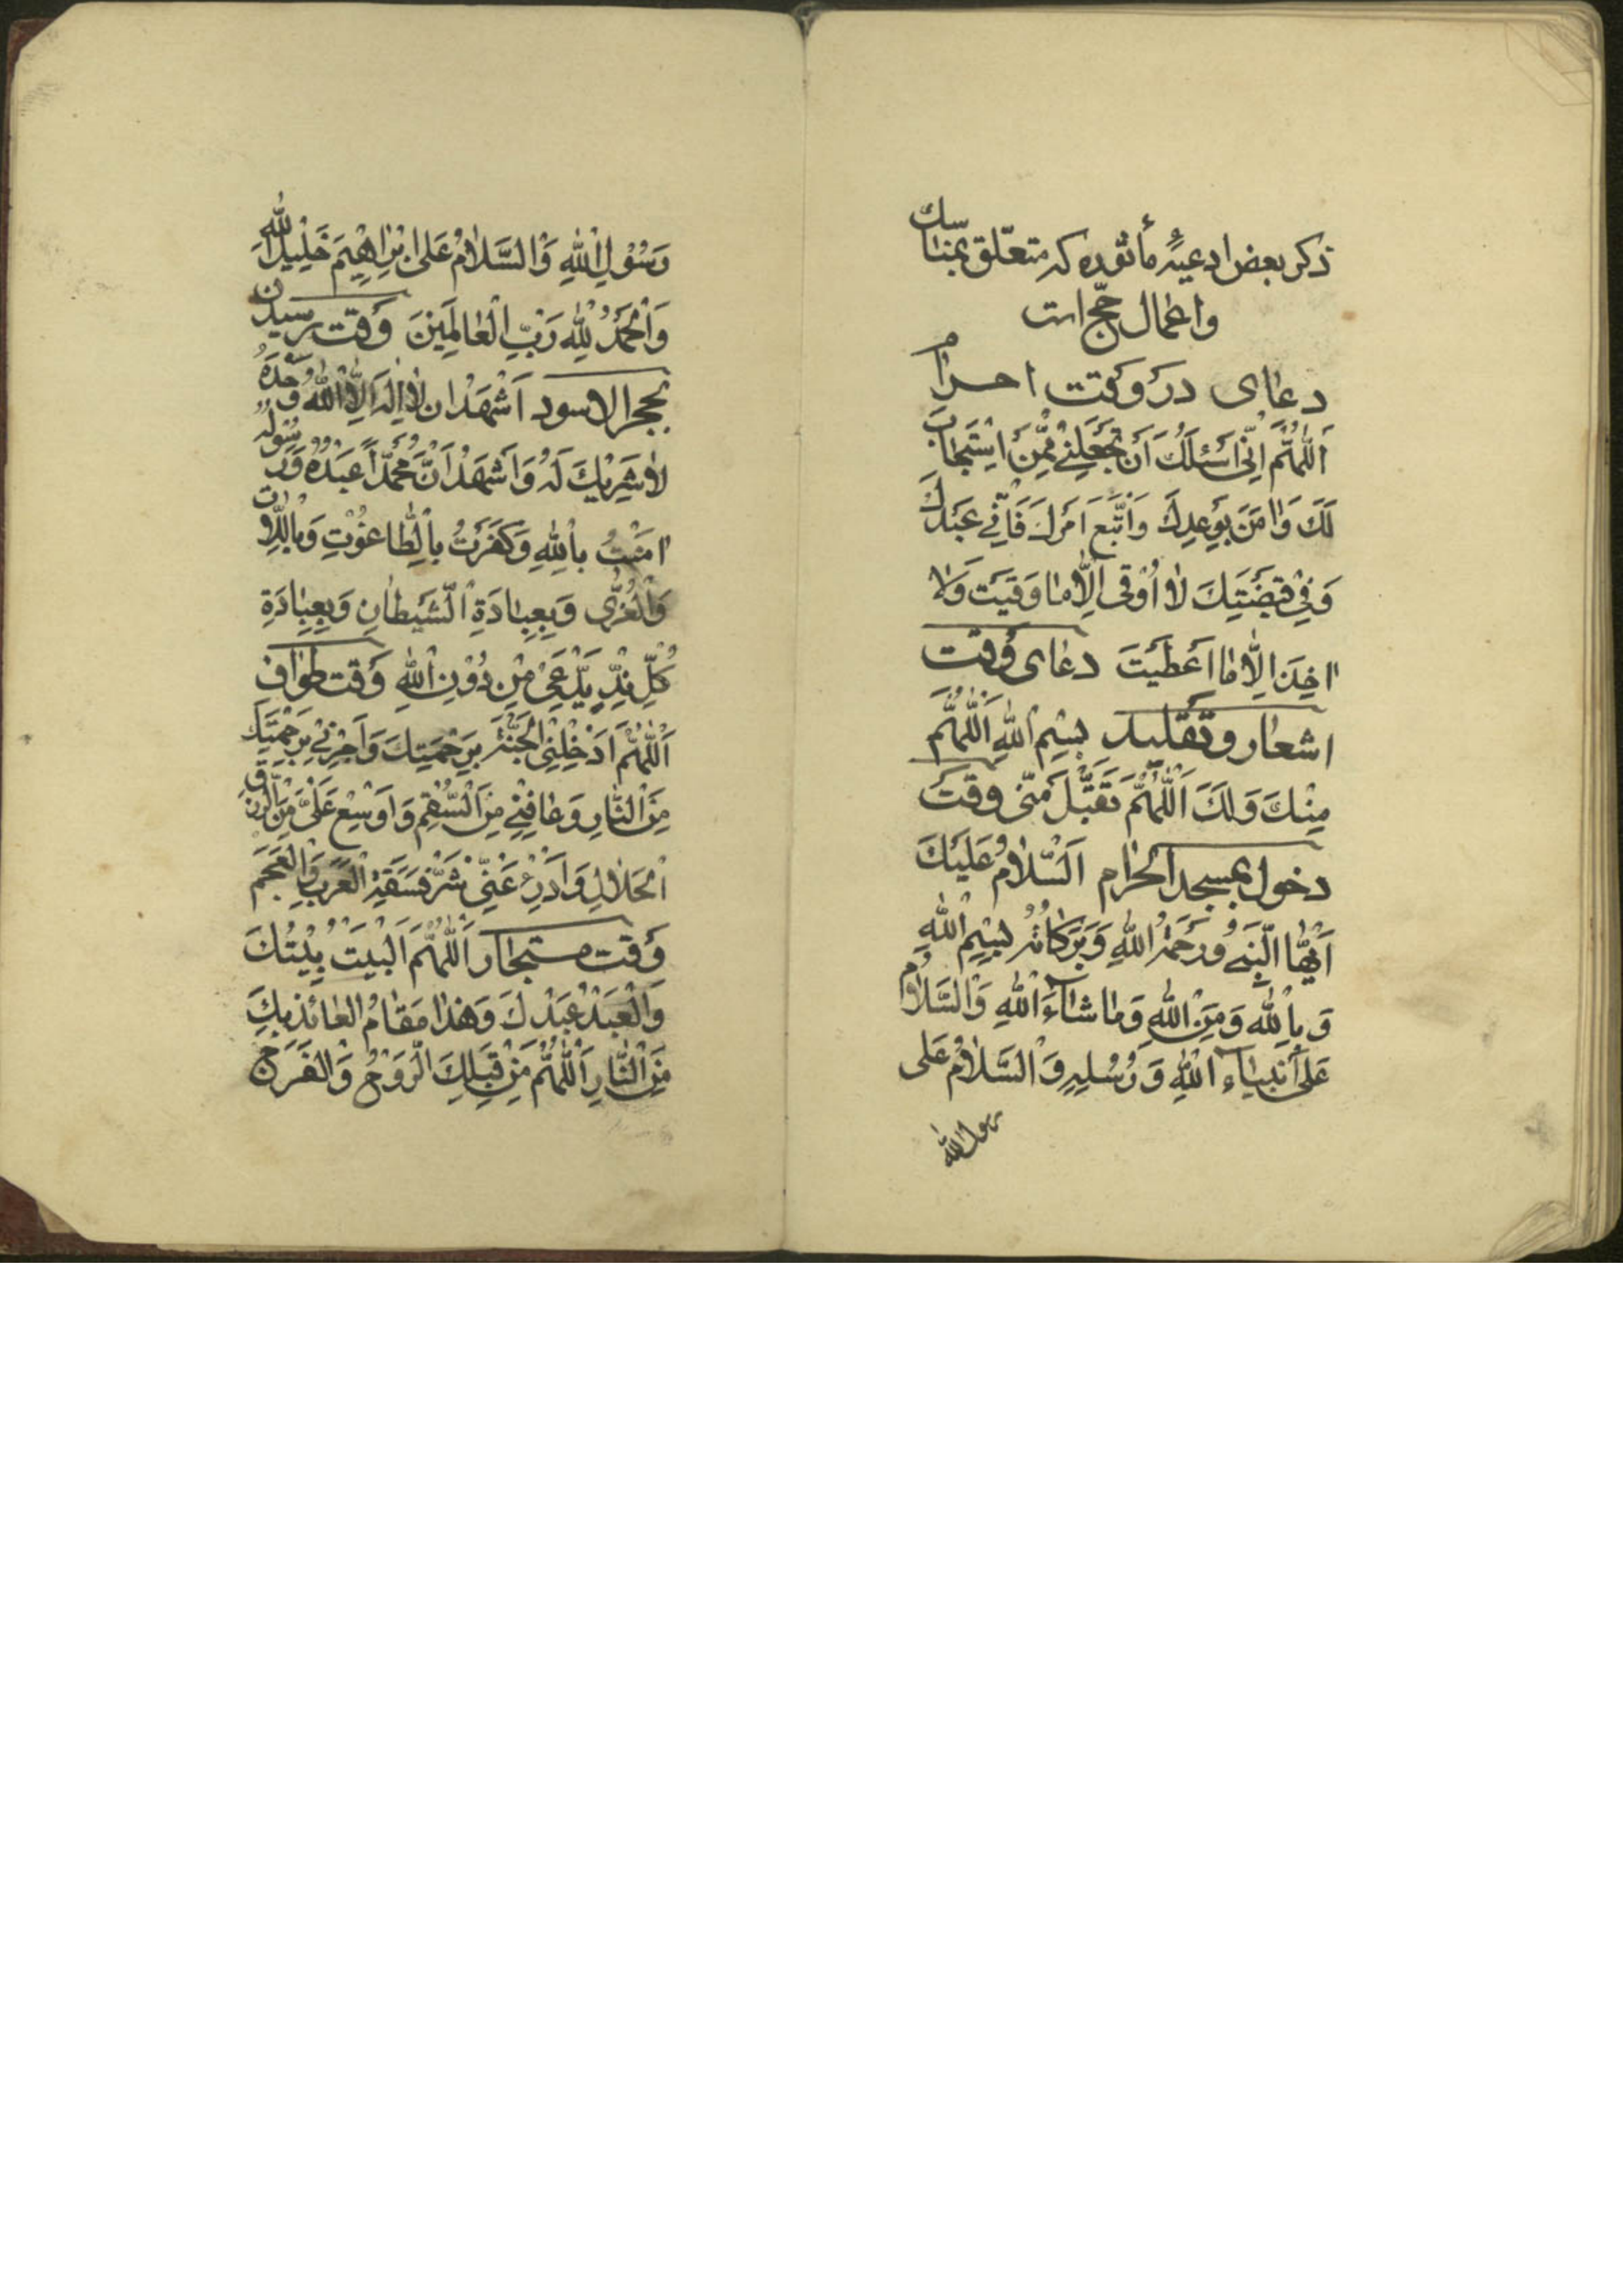 ذكر بعض ادعیهٔ مأثوره كه متعلّق بمناسك
واعمال حجّ است
دعاى در وقت احرام
اَللّٰهُمَّ اِنّى اَسْئَلُكَ اَنْ تَجْعَلَنِىْ مِمَّنْ اسْتَجَابَ
لَكَ وَاٰمَنَ بِوَعْدِكَ وَاتَّبَعَ اَمْرَكَ فَاِنِّى عَبْدُكَ
وَفِىْ قَبْضَتِكَ لاٰ اُوْقىٰ اِلاّٰ مٰا وَقَيْتَ وَلاٰ
اٰخِذَ اِلاّٰ مٰا اَعْطَيْتَ دعاى وقت
اشعار و تقليد بِسْمِ اللهِ اَللّٰهُمَّ
مِنْكَ وَلَكَ اَللّٰهُمَّ تَقَبَّلْ مِنّى وقت
دخول بمسجد الحرام اَلسَّلاٰمُ عَلَيْكَ
اَيُّهَا النَّبِىُّ وَرَحْمَةُ اللهِ وَبَرَكٰاتُهُ بِسْمِ اللهِ
وَبِاللهِ وَمِنَ اللهِ وَمٰا شٰاۤءَ اللهِ وَالسَّلاٰمُ
عَلىٰ اَنْبِيٰاۤءِ اللهِ وَرُسُلِهِ وَالسَّلاٰمُ عَلى
رسول الله
رَسُوْلِ اللهِ وَالسَّلاٰمُ عَلىٰ اِبْرٰاهِيْمَ خَلِيْلِ اللهِ
وَالْحَمْدُ لِلّٰهِ رَبِّ الْعٰالَمِيْنَ وقت رسيدن
بحجر الاسود اَشْهَدُ ان لاٰ اِلٰهَ اِلاَّ اللهُ وَحْدَهُ
لاٰ شَرِيْكَ لَهُ وَاَشْهَدُ اَنَّ مُحَمَّدًا عَبْدُهُ وَرَسُولُهُ
اٰمَنْتُ بِاللهِ وَكَفَرْتُ بِالطّٰاغُوْتِ وَبِاللاّٰتِ
وَالْعُزّٰى وَبِعِبٰادَةِ الشَّيْطٰانِ وَبِعِبٰادَةِ
كُلِّ نِدٍّ يُدْعىٰ مِنْ دُوْنِ اللهِ وقت طواف
اَللّٰهُمَّ اَدْخِلْنِى الْجَنَّةَ بِرَحْمَتِكَ وَاَجِرْنِىْ بِرَحْمَتِكَ
مِنَ النّٰارِ وَعٰافِنِىْ مِنَ السُّقْمِ وَاَوْسِعْ عَلَىَّ مِنَ الرِّزْقِ
الْحَلاٰلِ وَادْرَءْ عَنِّىْ شَرَّ فَسَقَةِ الْعَرَبِ وَالْعَجَمِ
وقت مستجار اَللّٰهُمَّ اَلْبَيْتُ بَيْتُكَ
وَالْعَبْدُ عَبْدُكَ وَهٰذٰا مَقٰامُ الْعٰائِذِ بِكَ
مِنَ النّٰارِ اَللّٰهُمَّ مِنْ قِبَلِكَ الرَّوْحُ وَالْفَرَجُ